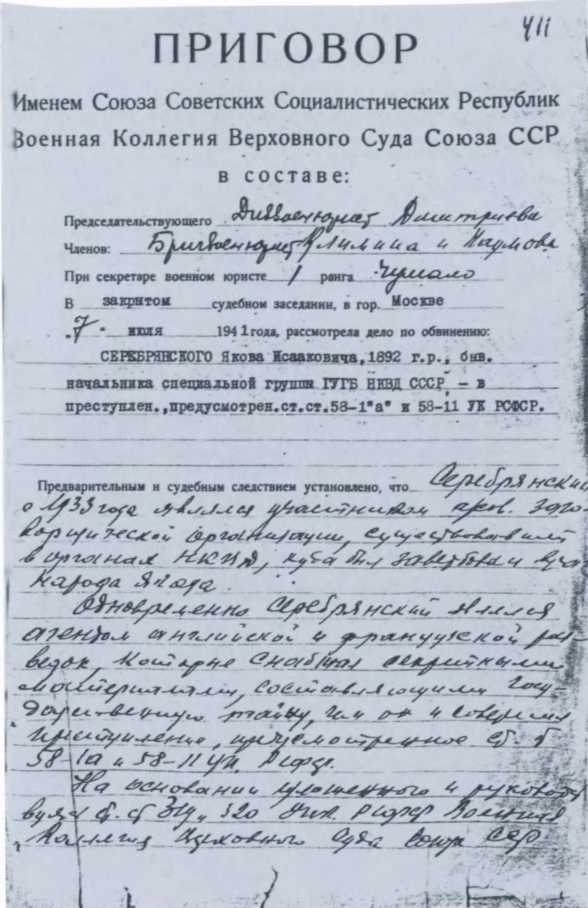 411
ПРИГОВОР
Именем Союза Советских Социалистических Республик
Военная Коллегия Верховного Суда Союза ССР
в составе:
Председательствующего Диввоенюрист Дмитриева
Членов: Бригвоенюрист Климина и Наумова
При секретаре военном юристе 1 ранга Чумало
В закрытом судебном заседании, в гор. Москве
"7" июля 1941 года, рассмотрела дело по обвинению:
СЕРЕБРЯНСКОГО Якова Исааковича, 1892 г.р., быв.
начальника специальной группы ГУГБ НКВД СССР, - в
преступлен., предусмотрен. ст.ст. 58-1"а" и 58-11 УК РСФСР.
Предварительным и судебным следствием установлено, что Серебрянский
с 1933 года являлся участником
организации, существовавшей
в органах НКВД, куда был завербован
народа Ягода.
Одновременно Серебрянский являлся
агентом английской и французской раз-
ведок, которые снабжал секретными
материалами, составляющими госу-
дарственную тайну, чем он и совершил
преступление, предусмотренное ст. ст.
58-1а и 58-11 УК РСФСР.
На основании изложенного и руковод
ст. ст. 319 и 320 УПК РСФСР Военная
Коллегия Верховного Суда Союза ССР